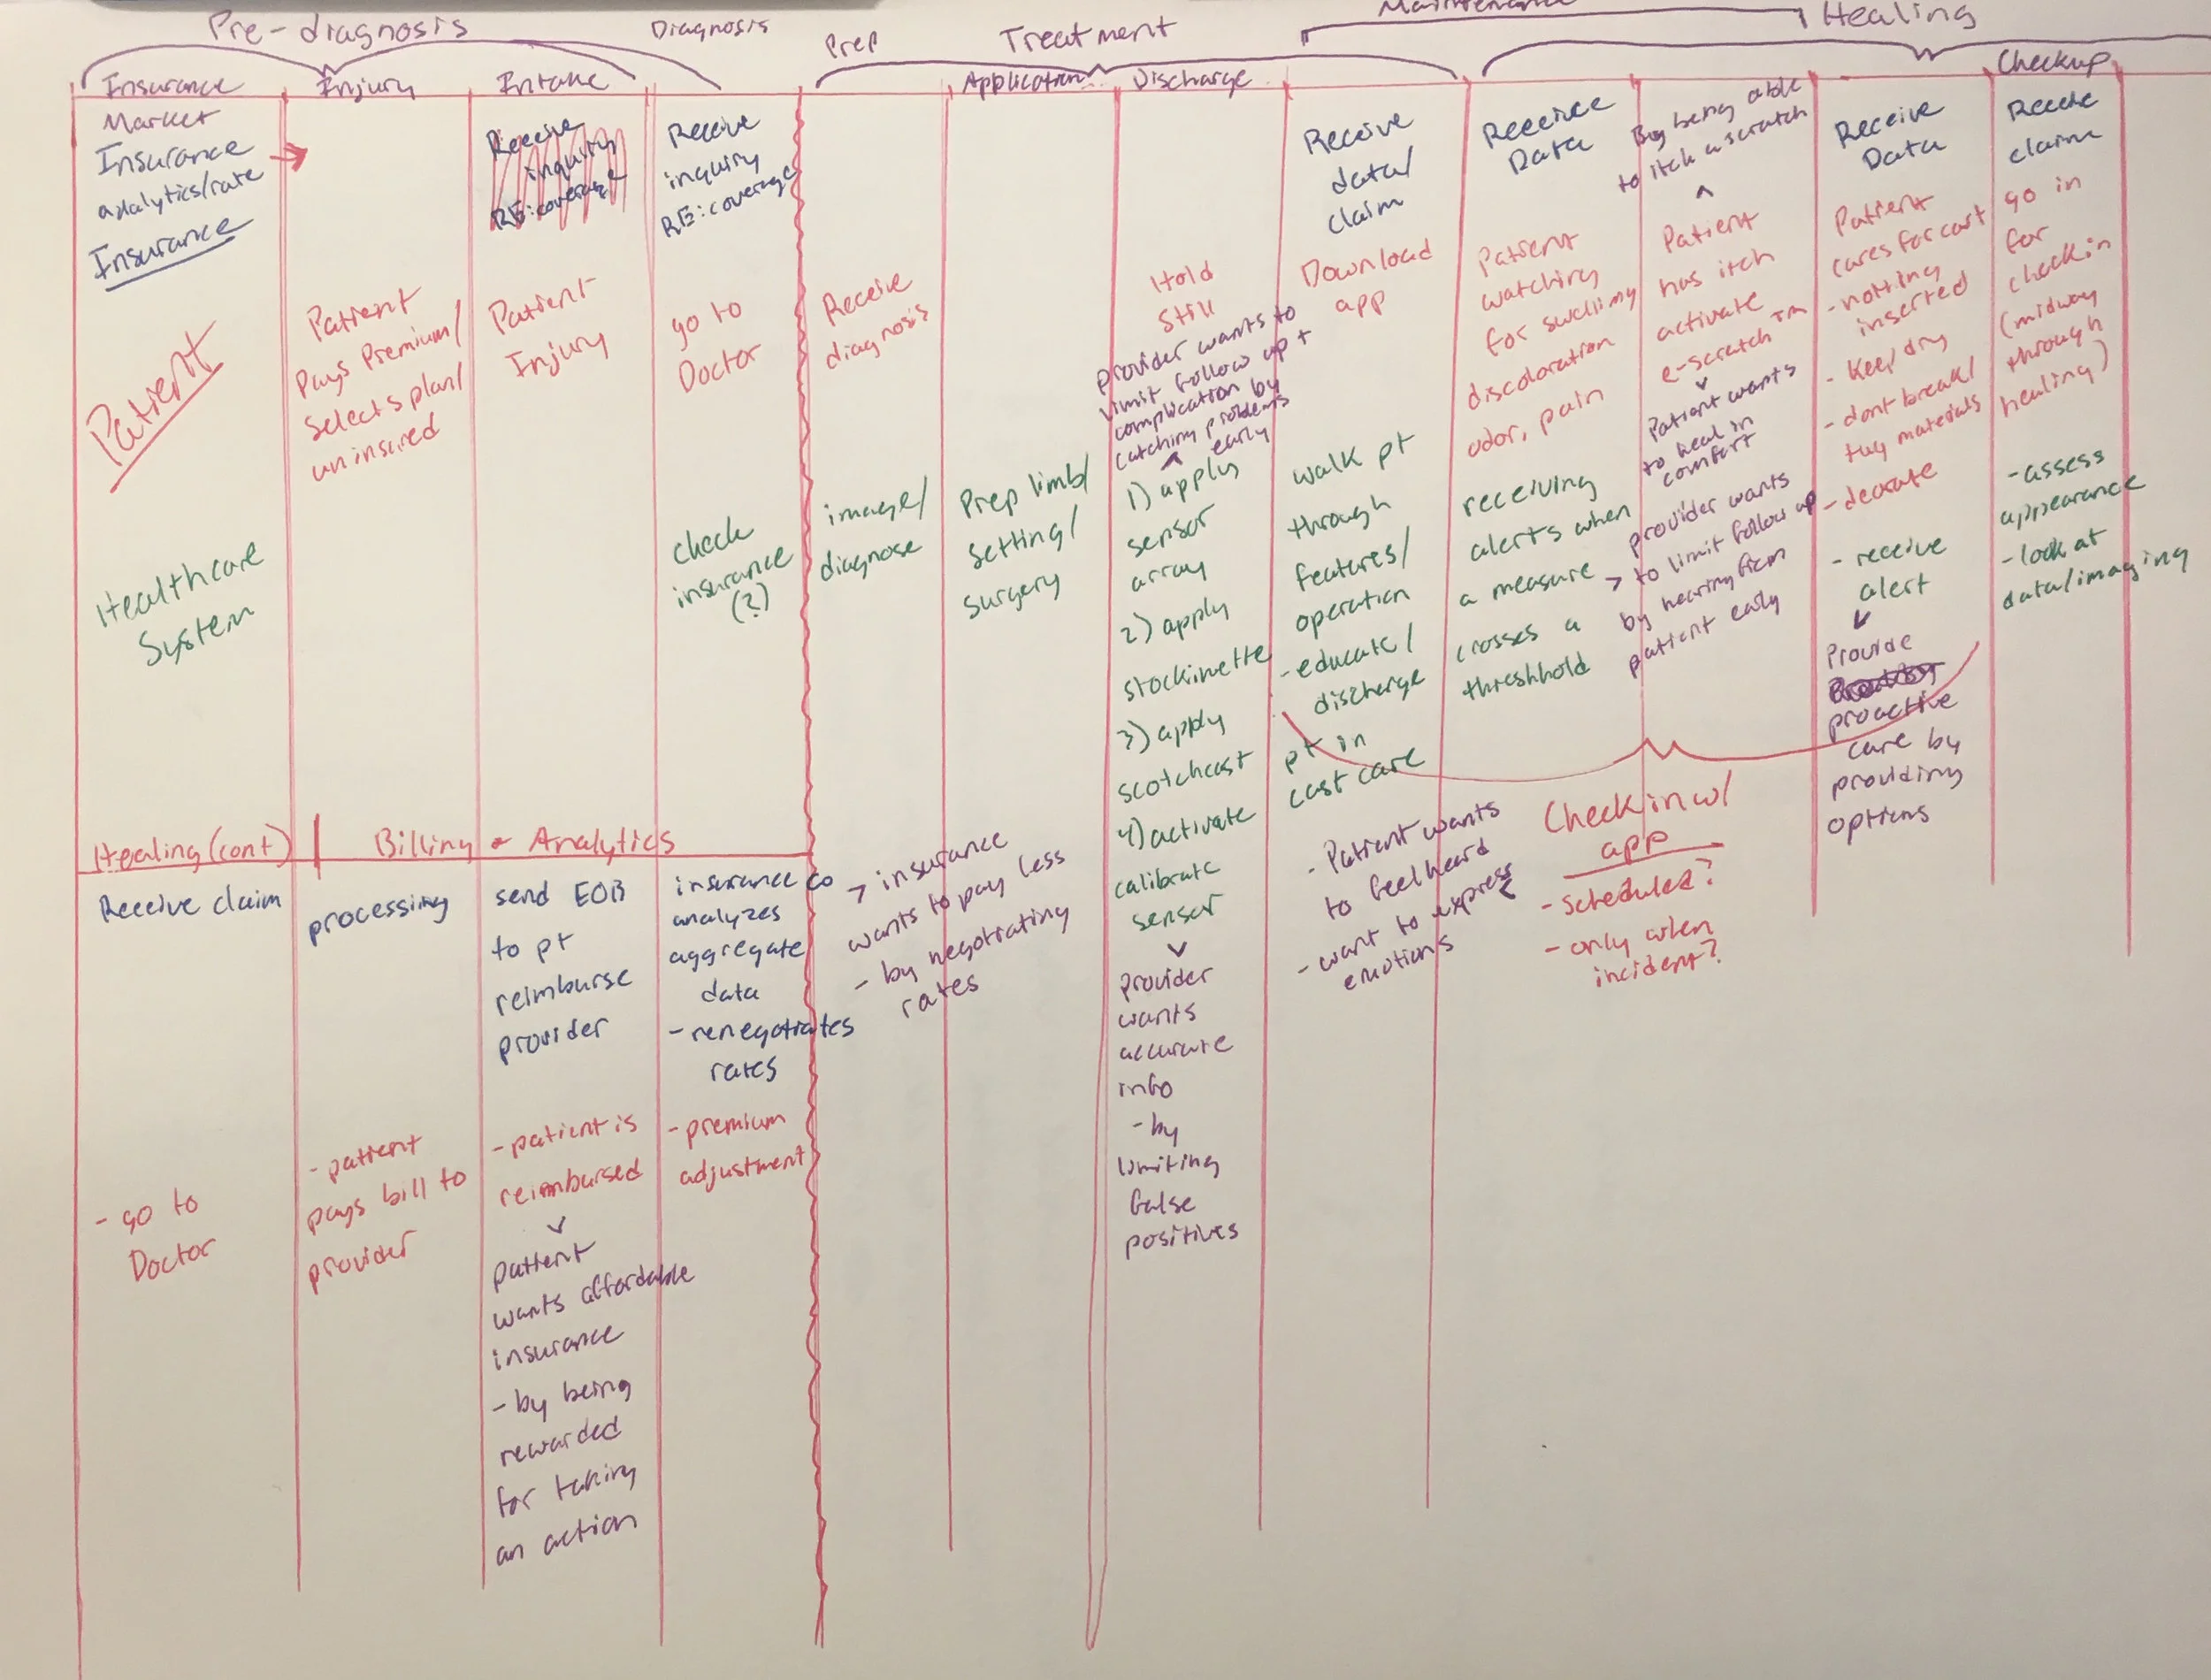 Pre-diagnosis
Diagnosis
Prep
Treatment
Maintenance
Healing
Insurance
Injury
Intake
Application
Discharge
Checkup
Market
Insurance
analytics/rate
Insurance
Receive
inquiry
RE:coverage
Receive
inquiry
RE:coverage
Receive
data/
claim
Receive
Data
By being able
to itch a scratch
^
Receive
Data
Receive
claim
Patient
Patient
Pays Premium/
Selects plan/
uninsured
Patient
Injury
go to
Doctor
Receive
diagnosis
Hold
Still
Download
app
Patient
watching
for swelling
discoloration
odor, pain
Patient
has itch
activate
e-scratch TM
v
Patient wants
to heal in
comfort
Patient
cares for cast
- nothing
inserted
- Keep dry
- dont break/
tug materials
- decorate
go in
for
checkin
(midway
through
healing)
Healthcare
System
check
insurance
(?)
image/
diagnose
Prep limb/
setting/
surgery
provider wants to
limit follow up +
complication by
catching problems
early
^
1) apply
sensor
array
2) apply
stockinette
3) apply
scotchcast
4) activate
calibrate
sensor
v
provider
wants
accurate
info
- by
limiting
false
positives
walk pt
through
features/
operation
- educate/
discharge
pt in
cast care
- Patient wants
to feel heard
- want to express
emotions
<
receiving
alerts when
a measure
crosses a
threshhold
provider wants
> to limit follow up
by hearing from
patient early
- receive
alert
v
Provide
proactive
care by
providing
options
- assess
appearance
- look at
data/imaging
Check in w/
app
- scheduled?
- only when
incident?
Healing (cont)
Billing & Analytics
Receive claim
processing
send EOB
to pt
reimburse
provider
insurance co
analyzes
aggregate
data
- renegotiates
rates
> insurance
wants to pay less
- by negotiating
rates
- go to
Doctor
- patient
pays bill to
provider
- patient is
reimbursed
v
patient
wants affordable
insurance
- by being
rewarded
for taking
an action
- premium
adjustment